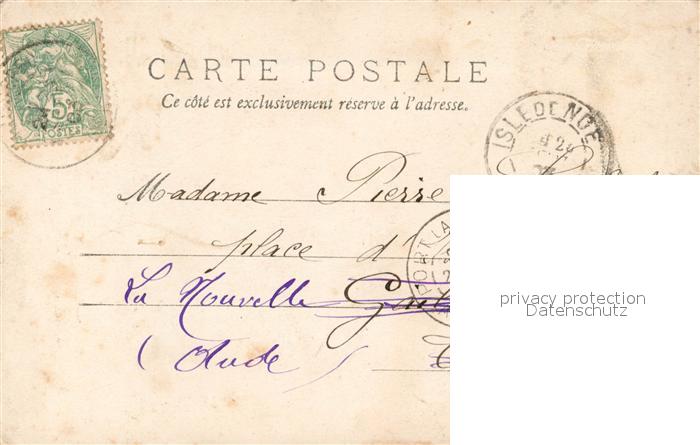 5c
POSTES
CARTE POSTALE
Ce côté est exclusivement réservé à l'adresse.
ISLE DE NOÉ
Madame Pierre
place d'
PORT LA
La Nouvelle
(Aude)
privacy protection
Datenschutz